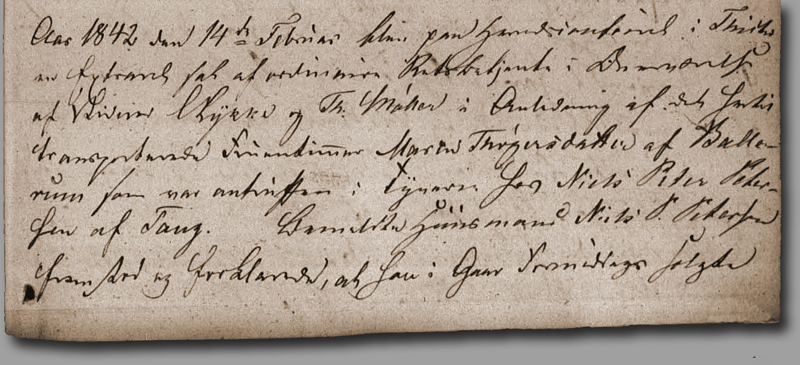 Aar 1842 den 14de Februar blev paa Herredscontoiret i Thisted
en Extraret sat af ordinaire Retsbetjente i Overværelse
af Vidner Nykke og Th. Møller i Anledning af det hertil
transporterede Fruentimmer Maren Thøgersdatter af Balle-
rum som var antruffen i Tyveri hos Niels Peter Peter-
sen af Tang. Bemeldte Huusmand Niels P. Petersen
fremstod og forklarede, at han i Gaar Formiddags solgte